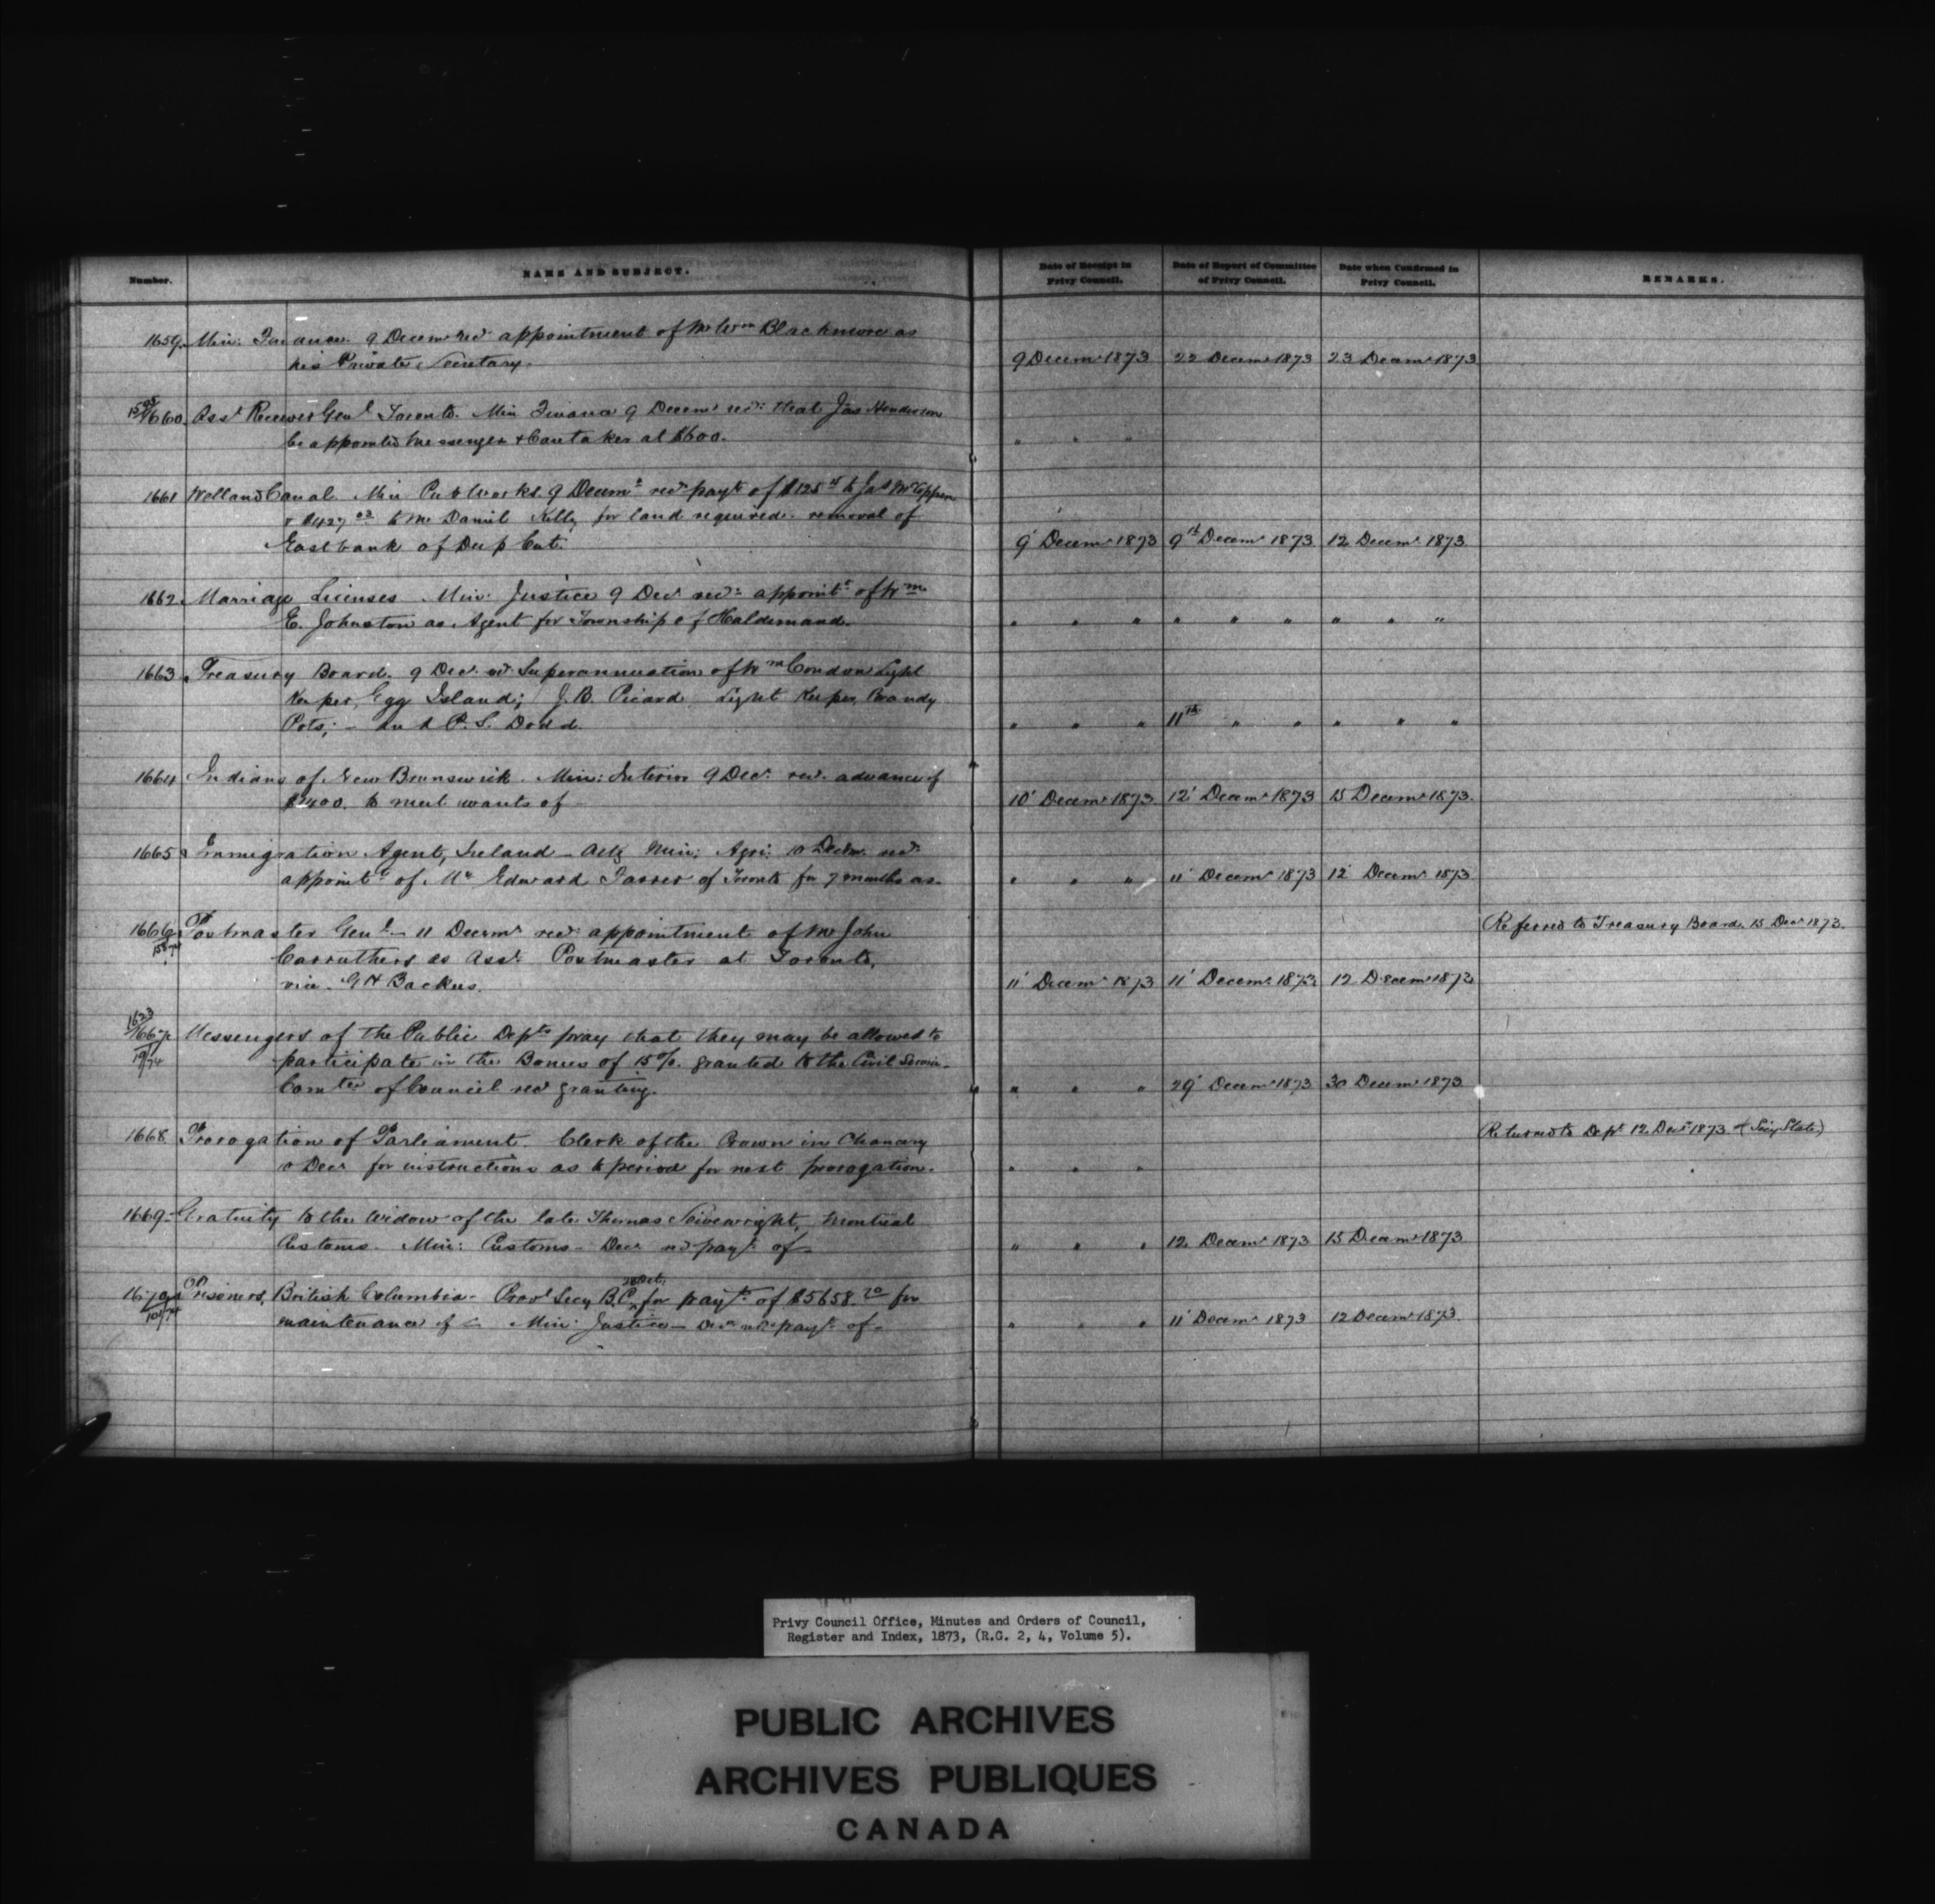 Number. NAME AND SUBJECT. Date of Receipt in Privy Council. Date of Report of Committee of Privy Council. Date when Confirmed in Privy Council. REMARKS.
1659. Min: Finance. 9 Decemr recd appointment of Mr Wm Blackmore as
his Private Secretary. 9 Decemr 1873 22 Decemr 1873 23 Decemr 1873
1660. Asst Receiver Genl Toronto. Min Finance 9 Decemr recd that Jas Henderson
be appointed Messenger & Caretaker at $600. " " "
1661 Welland Canal. Min Pub Works. 9 Decemr recd payt of $125 to Jas
& $427 02 to Mr Daniel Kelly for land required. removal of
East bank of Deep Cut. 9' Decemr 1873 9th Decemr 1873 12 Decemr 1873
1662. Marriage Licenses Min: Justice 9 Decr recd appointt of Wm
E. Johnston as Agent for Township of Haldimand. " " " " " " " " "
1663. Treasury Board. 9 Decr recd Superannuation of Wm Condon Light
Keeper, Egg Island; J.B. Picard Light Keeper, Brandy
Pots; - and P. S. Dodd. " " " 11th " " " " "
1664 Indians of New Brunswick. Min: Interior 9 Decr recd advance of
$2400. to meet wants of 10' Decemr 1873 12' Decemr 1873 15 Decemr 1873.
1665 Immigration Agent, Ireland - Actg Min: Agri: 10 Decemr recd
appointt of Mr Edward Farrer of Toronto for 7 months as - " " " 11' Decemr 1873 12' Decemr 1873
1666. Postmaster Genl - 11 Decemr recd appointment of Mr John Referred to Treasury Board. 15 Decr 1873.
Carruthers as Asst Postmaster at Toronto,
vice. G H Backus. 11' Decemr 1873 11' Decemr 1873. 12 Decemr 1873
1623
1667 Messengers of the Public Depts pray that they may be allowed to
19/74 participate in the Bonus of 15%. granted to the Civil Service -
Comtee of Council recd granting. " " " 29' Decemr 1873 30 Decemr 1873
1668. Prorogation of Parliament. Clerk of the Crown in Chancery Returned to Dept 12 Decr 1873 (Secy State)
Decr for instructions as to period for next prorogation. " " "
1669. Gratuity to the Widow of the late Thomas Sivewright, Montreal
Customs. Min: Customs - Decr recd payt of - " " " 12. Decemr 1873 15 Decemr 1873
28 Oct.
1670 Prisoners, British Columbia - Provl Secy B.C. for payt of $5658.70 for
maintenance of - Min: Justice - Decr recd payt of - " " " 11' Decemr 1873 12 Decemr 1873.
Privy Council Office, Minutes and Orders of Council,
Register and Index, 1873, (R.G. 2, 4, Volume 5).
PUBLIC ARCHIVES
ARCHIVES PUBLIQUES
CANADA